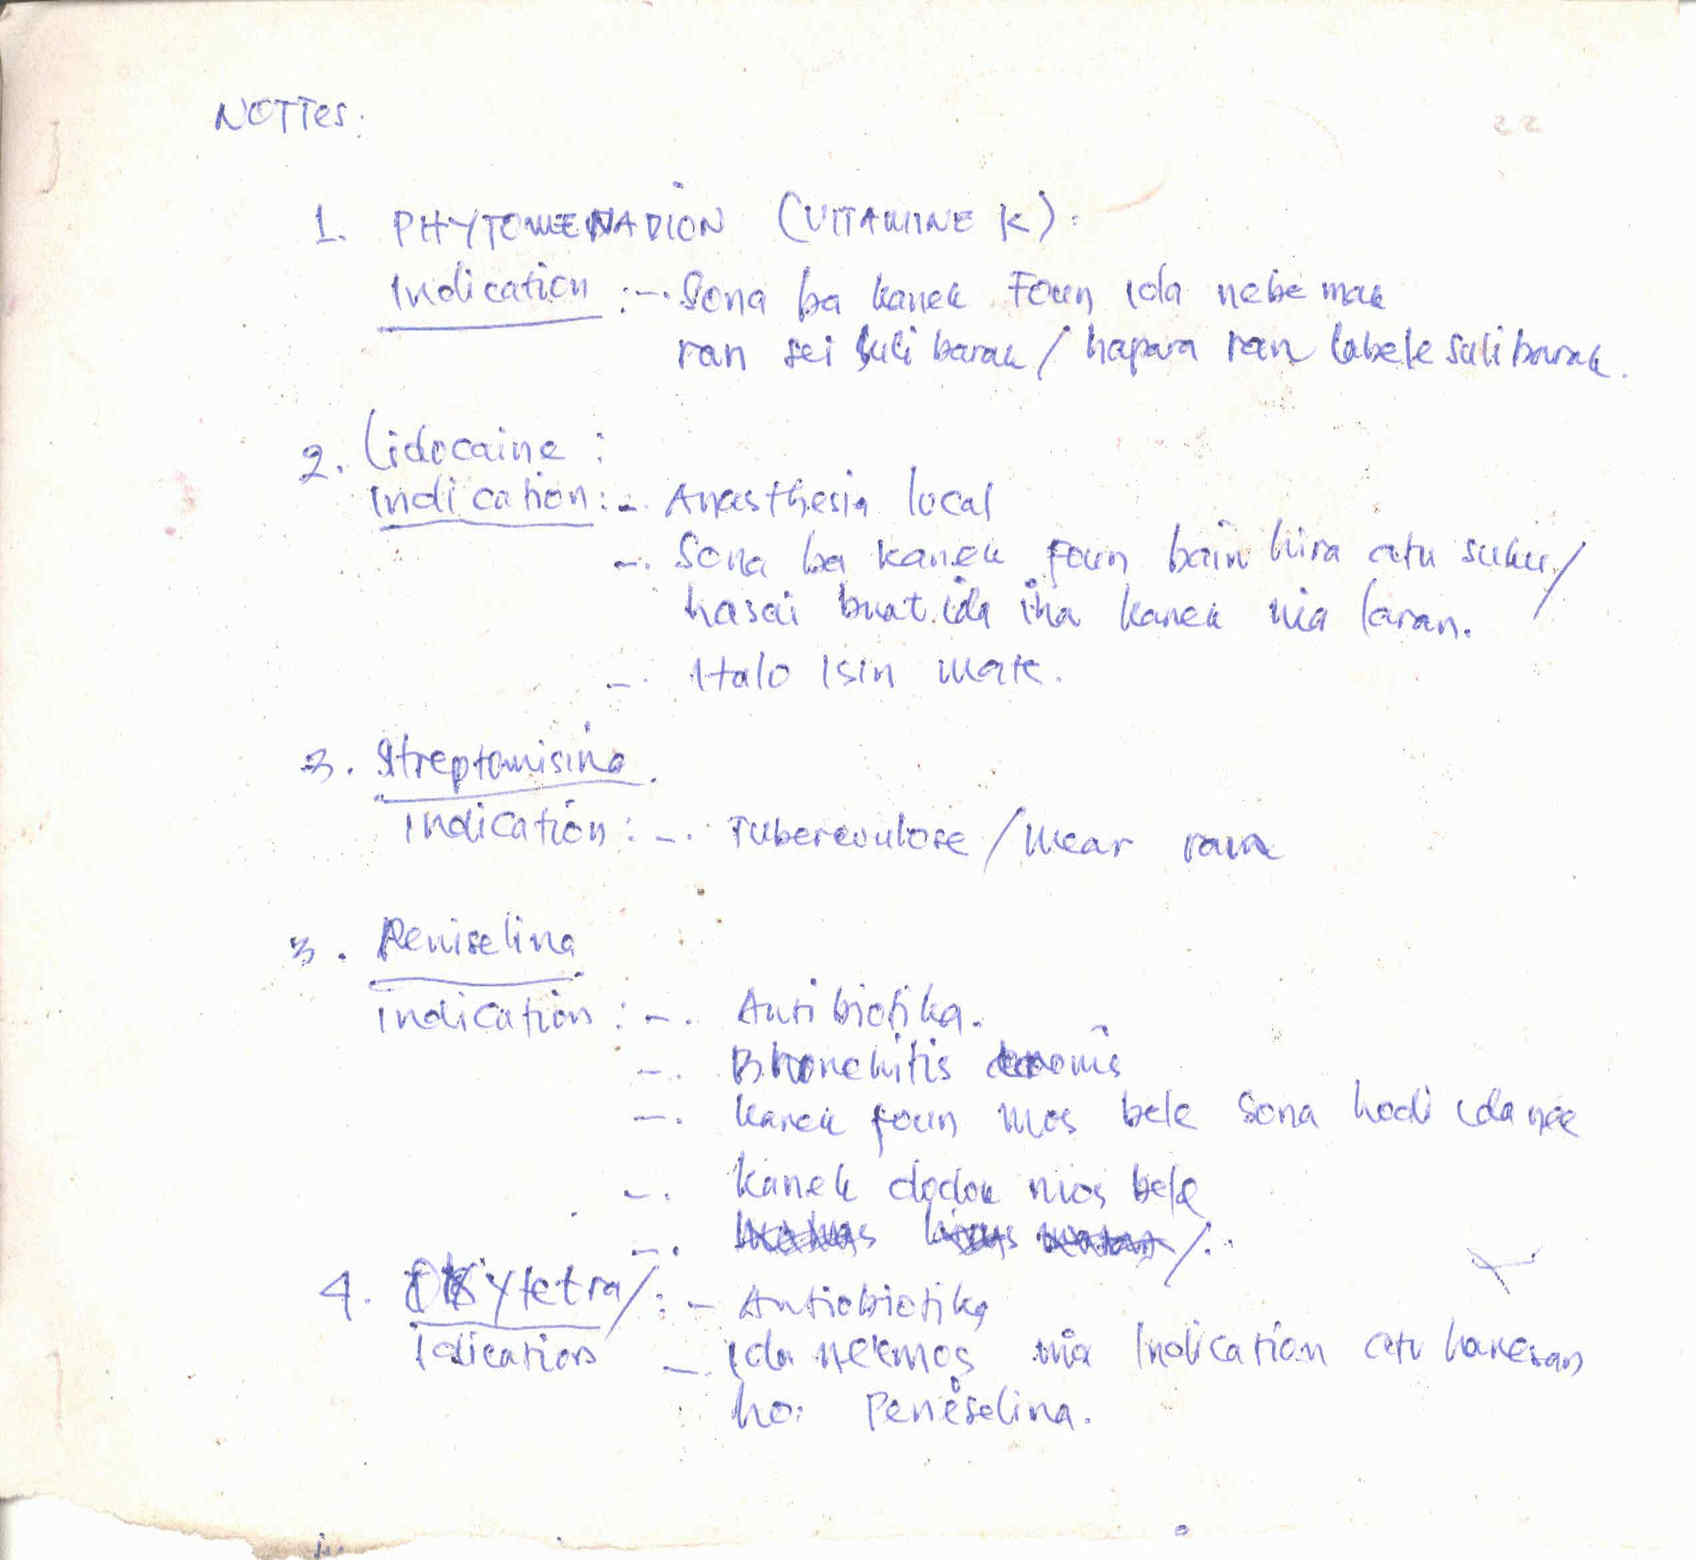 NOTTes:
1. PHYTOMENADION (VITAMINE K):
Indication :-. Sona ba kanek Foun ida nebe mak
ran sei suli barak / hapara ran labele suli barak.
2. Lidocaine :
Indication :-. Anasthesia local
-. Sona ba kanek foun bain hira atu suku /
hasai buat ida iha kanek nia laran.
-. Halo Isin mate.
3. Streptomisina.
Indication : -. Tubercoulose / Mear ran
3. Peniselina
indication : -. Antibiotika.
-. Bhonchitis cronis
-. kanek foun mos bele Sona hodi ida nee
-. kanek dodok mos bele
-.
4. OKsytetra / : - Antiobiotika
Idication -. ida ne'e mos nia Indication atu hanesan
ho: Peneselina.